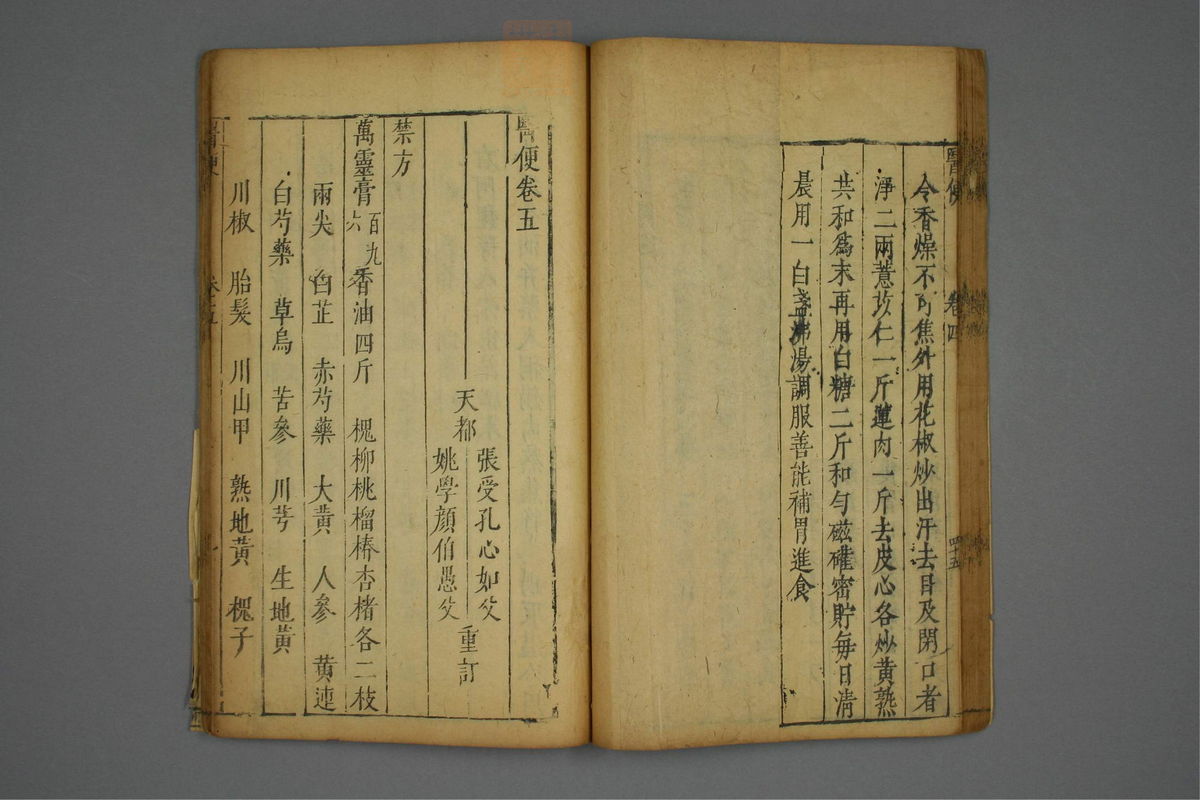 醫便 卷四 四十五
令香燥不可焦外用花椒炒出汗去目及閉口者
淨二兩薏苡仁一斤蓮肉一斤去皮心各炒黃熟
共和爲末再用白糖二斤和勻磁礶密貯每日清
晨用一白盞沸湯調服善能補胃進食
醫便卷五
天都
張受孔心如父
姚學顏伯愚父
重訂
禁方
萬靈膏 百九六 香油四斤 槐柳桃榴椿杏楮各二枝
兩尖 白芷 赤芍藥 大黃 人參 黃連
白芍藥 草烏 苦參 川芎 生地黃
川椒 胎髮 川山甲 熟地黃 槐子
醫便 卷之五